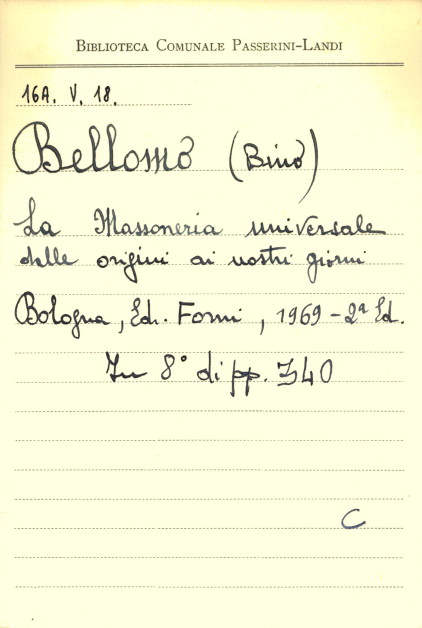 BIBLIOTECA COMUNALE PASSERINI-LANDI
16A. V. 18.
Bellomò (Bino)
La Massoneria universale
dalle origini ai nostri giorni
Bologna, Ed. Forni, 1969 - 2ª Ed.
In 8° di pp. 340
C